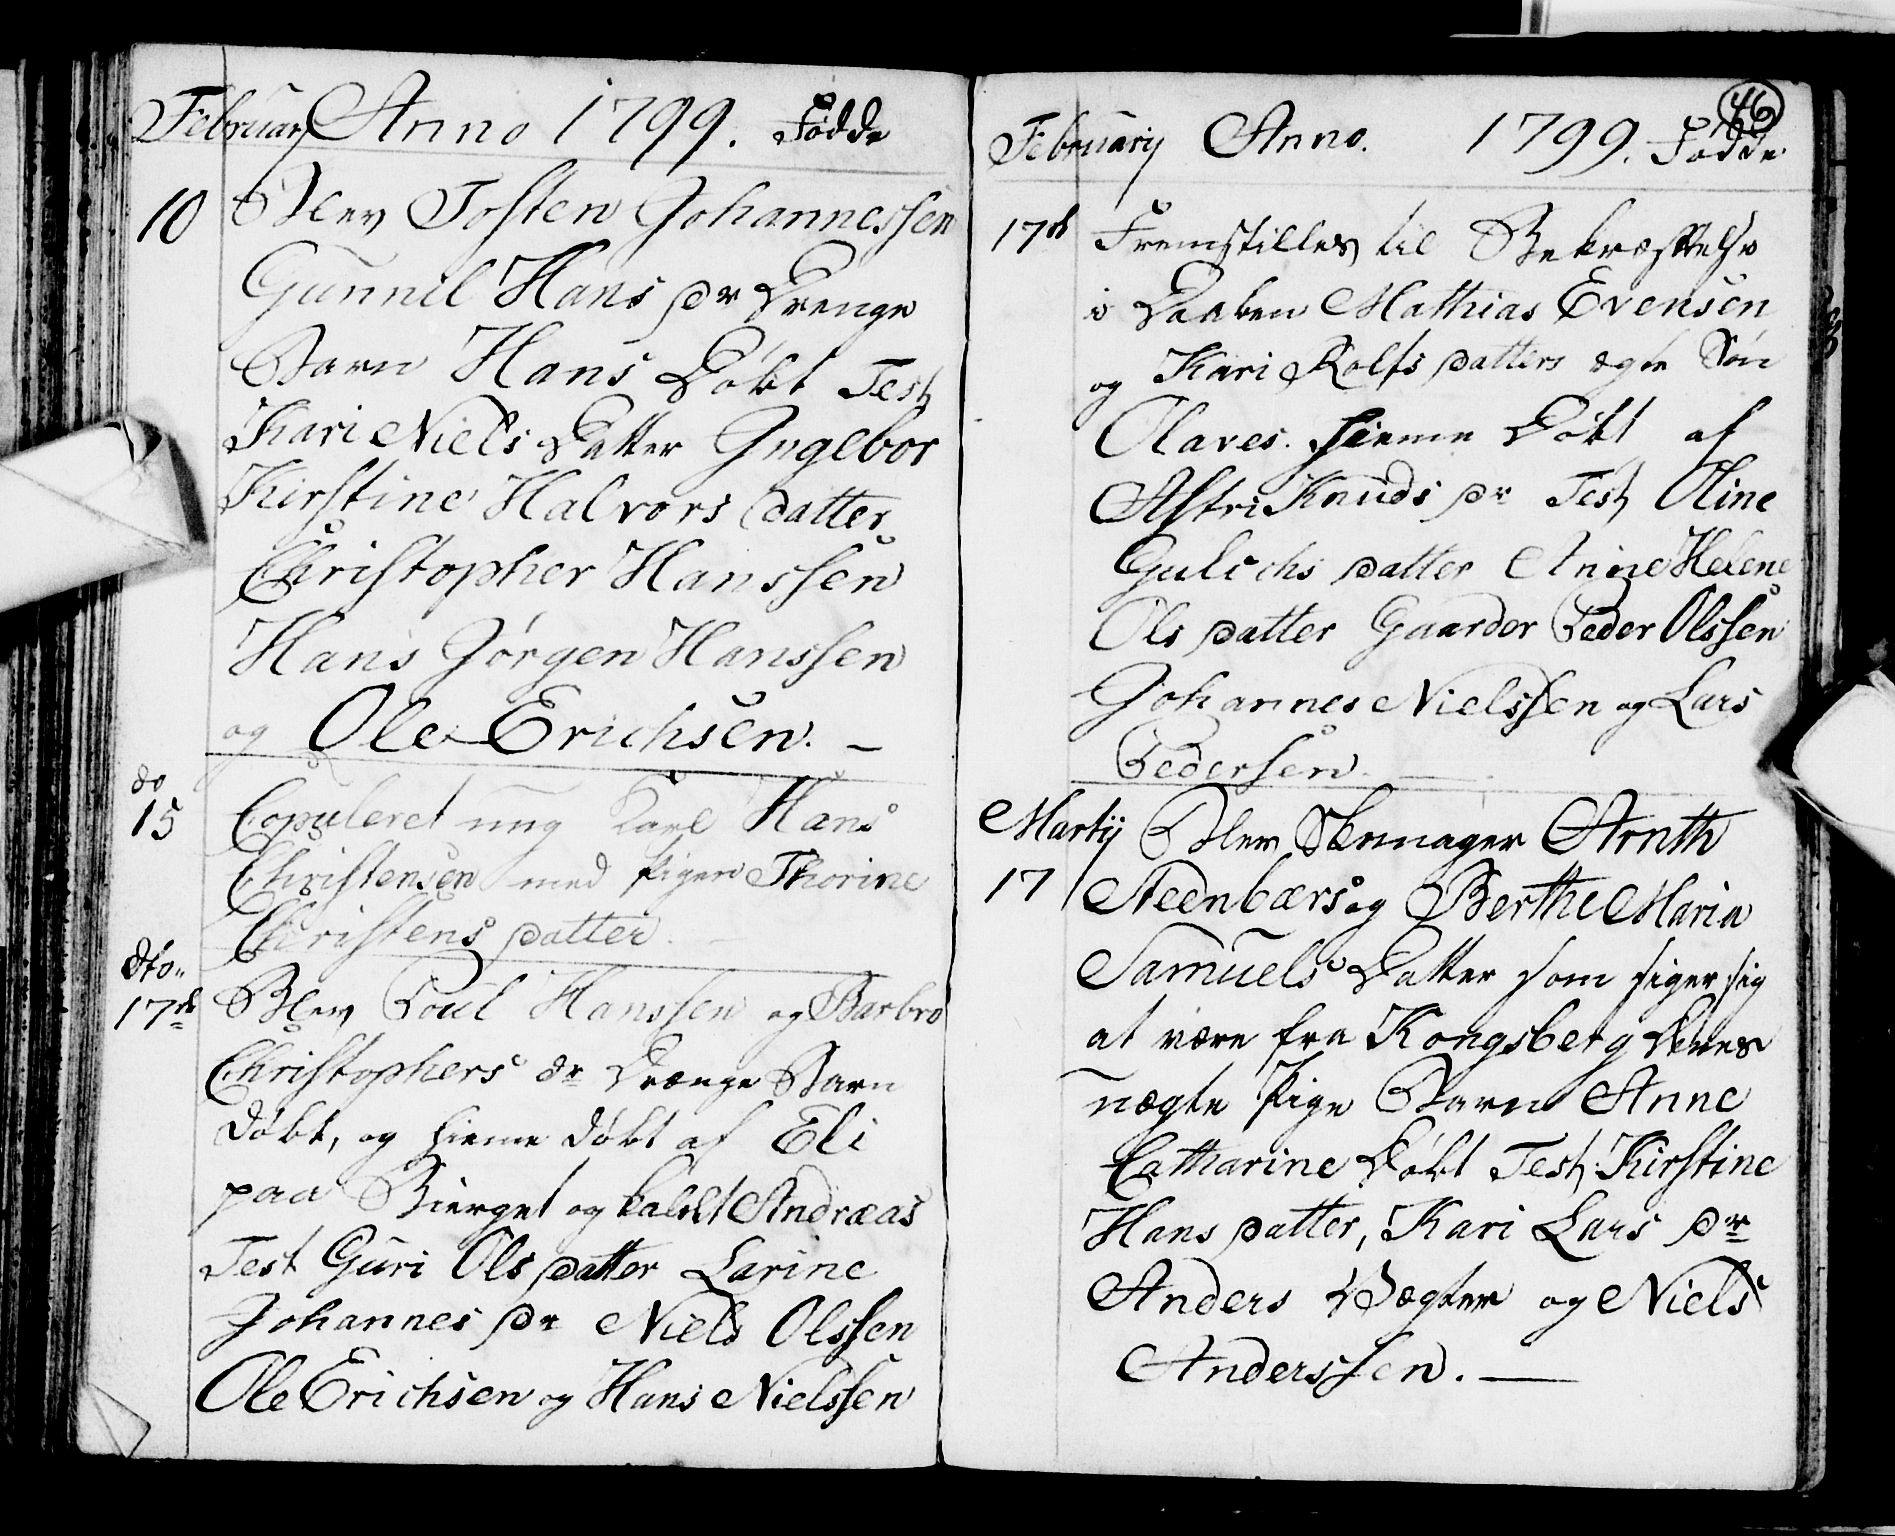 Februarij Anno 1799. Fødde
10 Blev Tosten Johannessen
Gunnil Hans Dr Drenge
Barn Hans Døbt Test
Kari Niels Datter Ingebor
Kirstine Halvors Datter
Christopher Hanssen
Hans Jørgen Hanssen
og Ole Erichsen. —
do
15 Copuleret ung Karl Hans
Christensen med Pigen Thorine
Christens Datter. —
dto
17de Blev Poul Hanssen og Barbro
Christophers dr Drænge Barn
døbt, og hieme døbt af Eli
paa Bierget og kaldt Andræas
Test Guri Ols Datter Larine
Johannes Dr Niels Olssen
Ole Erichsen og Hans Nielssen
46
Februarij Anno. 1799. Fødde
17d Fremstilles til Bekræftelse
i Daaben Mathias Evensen
og Kari Rolfs Datters ægte Søn
Olaves. hieme Døbt af
Astri Knuds Dr Test Oline
Gulichs Datter Anne Helene
Ols Datter Gaarder Peder Olssen
Johannes Nielssen og Lars
Pedersen. —
Martij Blev Skomager Arnth
17 Steenbærs og Berthe Maria
Samuels Datter som siger sig
at være fra Kongsberg Deres
uægte Pige Barn Anne
Catharine Døbt Test: Kirstine
Hans Datter, Kari Lars Dr
Anders Vægter og Niels
Anderssen. —